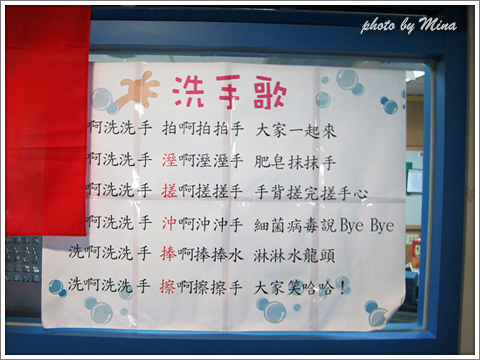 photo by Mina
洗手歌
啊洗洗手 拍啊拍拍手 大家一起來
啊洗洗手 溼啊溼溼手 肥皂抹抹手
啊洗洗手 搓啊搓搓手 手背搓完搓手心
啊洗洗手 沖啊沖沖手 細菌病毒說Bye Bye
洗啊洗洗手 捧啊捧捧水 淋淋水龍頭
洗啊洗洗手 擦啊擦擦手 大家笑哈哈！